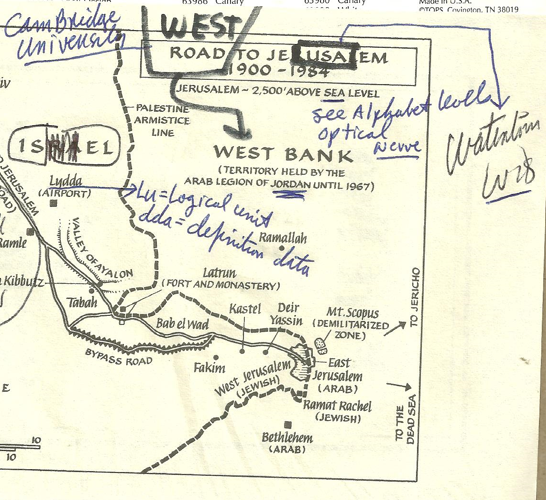 63986 Canary
63980 Canary
Made in U.S.A.
©TOPS, Covington, TN 38019
CamBridge
University
WEST
ROAD TO JERUSALEM
1900 - 1984
JERUSALEM ~ 2,500' ABOVE SEA LEVEL
PALESTINE
ARMISTICE
LINE
see Alphabet levels
optical
nerve
WEST BANK
(TERRITORY HELD BY THE
ARAB LEGION OF JORDAN UNTIL 1967)
ISRAEL
Lydda
(AIRPORT)
Lu = Logical unit
dda = definition data
JERUSALEM
ROAD)
Ramle
VALLEY OF AYALON
Ramallah
Latrun
(FORT AND MONASTERY)
Kibbutz
Tabah
Kastel
Deir
Yassin
Mt. Scopus
(DEMILITARIZED
ZONE)
TO JERICHO
Bab el Wad
BYPASS ROAD
Fakim
West Jerusalem
(JEWISH)
East
Jerusalem
(ARAB)
Ramat Rachel
(JEWISH)
TO THE
DEAD SEA
Bethlehem
(ARAB)
E
10
10